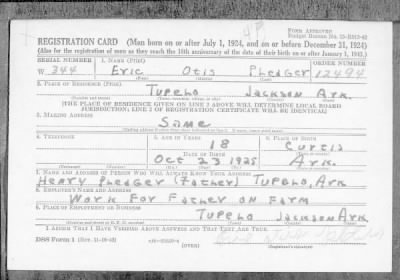 FORM APPROVED
REGISTRATION CARD (Men born on or after July 1, 1924, and on or before December 31, 1924)
(Also for the registration of men as they reach the 18th anniversary of the date of their birth on or after January 1, 1943.)
SERIAL NUMBER 1. NAME (Print) ORDER NUMBER
W 344 Eric Otis Pledger 12494
2. PLACE OF RESIDENCE (Print)
Tupelo Jackson Ark.
[THE PLACE OF RESIDENCE GIVEN ON LINE 2 ABOVE WILL DETERMINE LOCAL BOARD
JURISDICTION; LINE 2 OF REGISTRATION CERTIFICATE WILL BE IDENTICAL]
3. MAILING ADDRESS
Same
4. TELEPHONE 5. AGE IN YEARS 6. PLACE OF BIRTH
18 Curtis
DATE OF BIRTH
Oct 23 1925 Ark.
7. NAME AND ADDRESS OF PERSON WHO WILL ALWAYS KNOW YOUR ADDRESS
Henry Pledger (Father) Tupelo, Ark
8. EMPLOYER'S NAME AND ADDRESS
Work For Father on Farm
9. PLACE OF EMPLOYMENT OR BUSINESS
Tupelo Jackson Ark.
I AFFIRM THAT I HAVE VERIFIED ABOVE ANSWERS AND THAT THEY ARE TRUE.
DSS Form 1 (OVER)